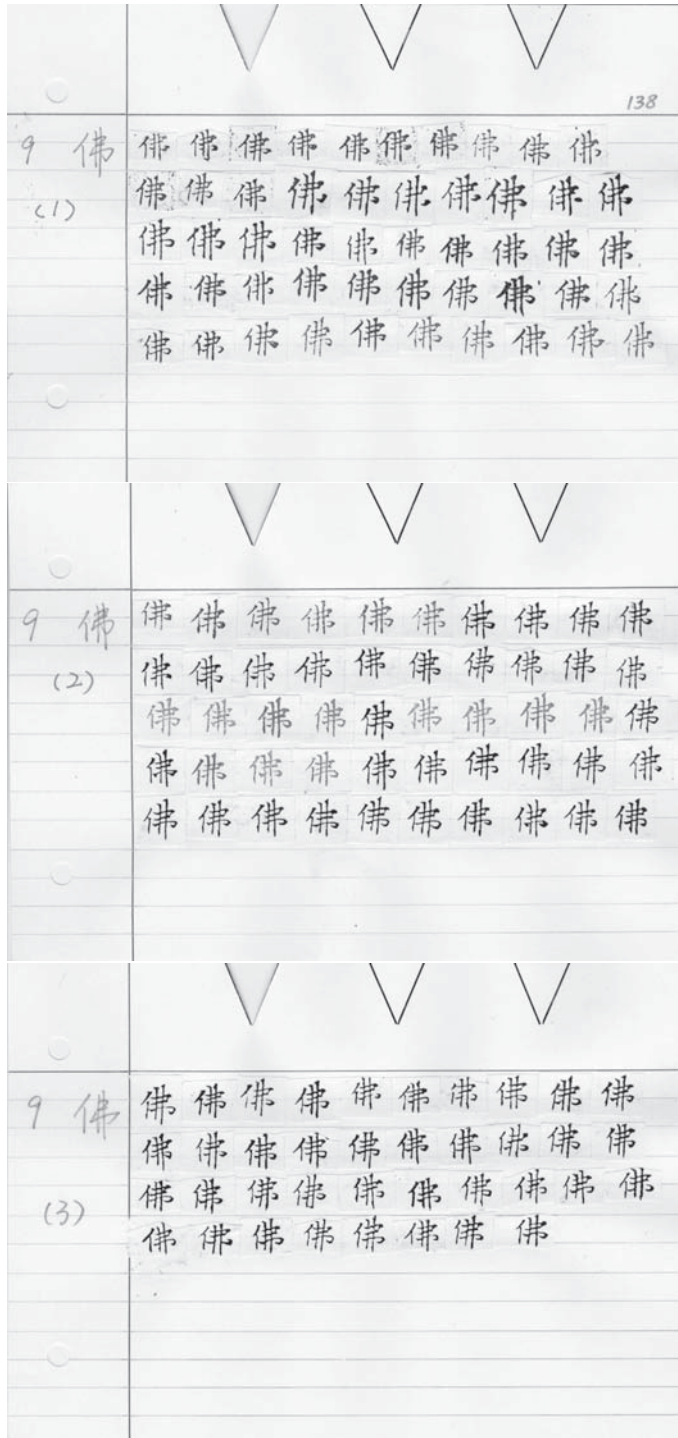 138
9 佛 佛 佛 佛 佛 佛 佛 佛 佛 佛 佛
(1) 佛 佛 佛 佛 佛 佛 佛 佛 佛 佛
佛 佛 佛 佛 佛 佛 佛 佛 佛 佛
佛 佛 佛 佛 佛 佛 佛 佛 佛 佛
佛 佛 佛 佛 佛 佛 佛 佛 佛 佛
9 佛 佛 佛 佛 佛 佛 佛 佛 佛 佛 佛
(2) 佛 佛 佛 佛 佛 佛 佛 佛 佛 佛
佛 佛 佛 佛 佛 佛 佛 佛 佛 佛
佛 佛 佛 佛 佛 佛 佛 佛 佛 佛
佛 佛 佛 佛 佛 佛 佛 佛 佛 佛
9 佛 佛 佛 佛 佛 佛 佛 佛 佛 佛 佛
佛 佛 佛 佛 佛 佛 佛 佛 佛 佛
(3) 佛 佛 佛 佛 佛 佛 佛 佛 佛 佛
佛 佛 佛 佛 佛 佛 佛 佛